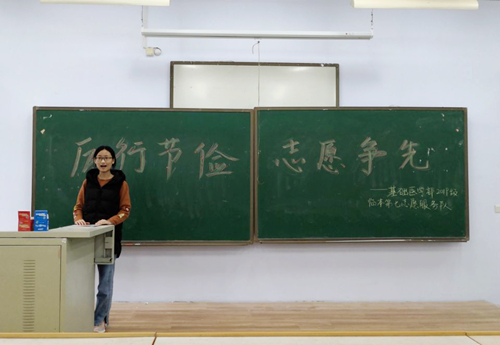 厉行节俭 志愿争先
——基础医学部
志愿服务队